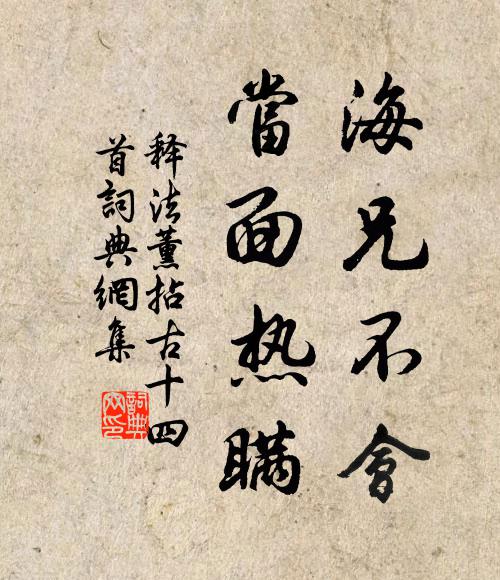 海兄不會
當面热瞞
释法薰拈古十四
首詞典網集
詞典
网印